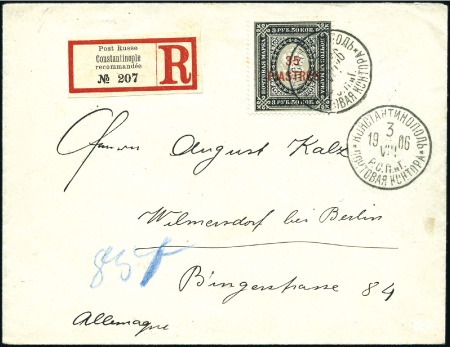 Post Russe
Constantinople
recommandée
№ 207
R
3 РУБ. 50 КОП.
ПОЧТОВАЯ МАРКА
35
PIASTRES
3 РУБ. 50 КОП.
ПОЧТОВАЯ КОНТОРА
КОНСТАНТИНОПОЛЬ
3
19 06
VII
Р.О.П.и Т.
ПОЧТОВАЯ КОНТОРА
Herrn August Kalz
Wilmersdorf bei Berlin
Bingerstrasse 84
Allemagne